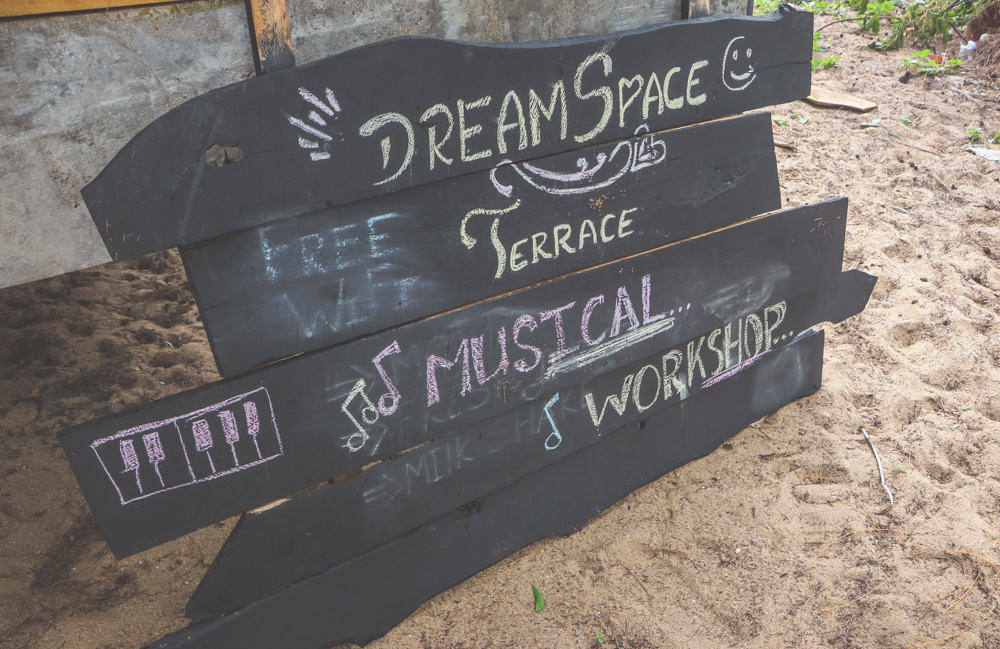 DREAMSPACE
TERRACE
FREE
MUSICAL...
WORKSHOP...
=> MILKSHAK